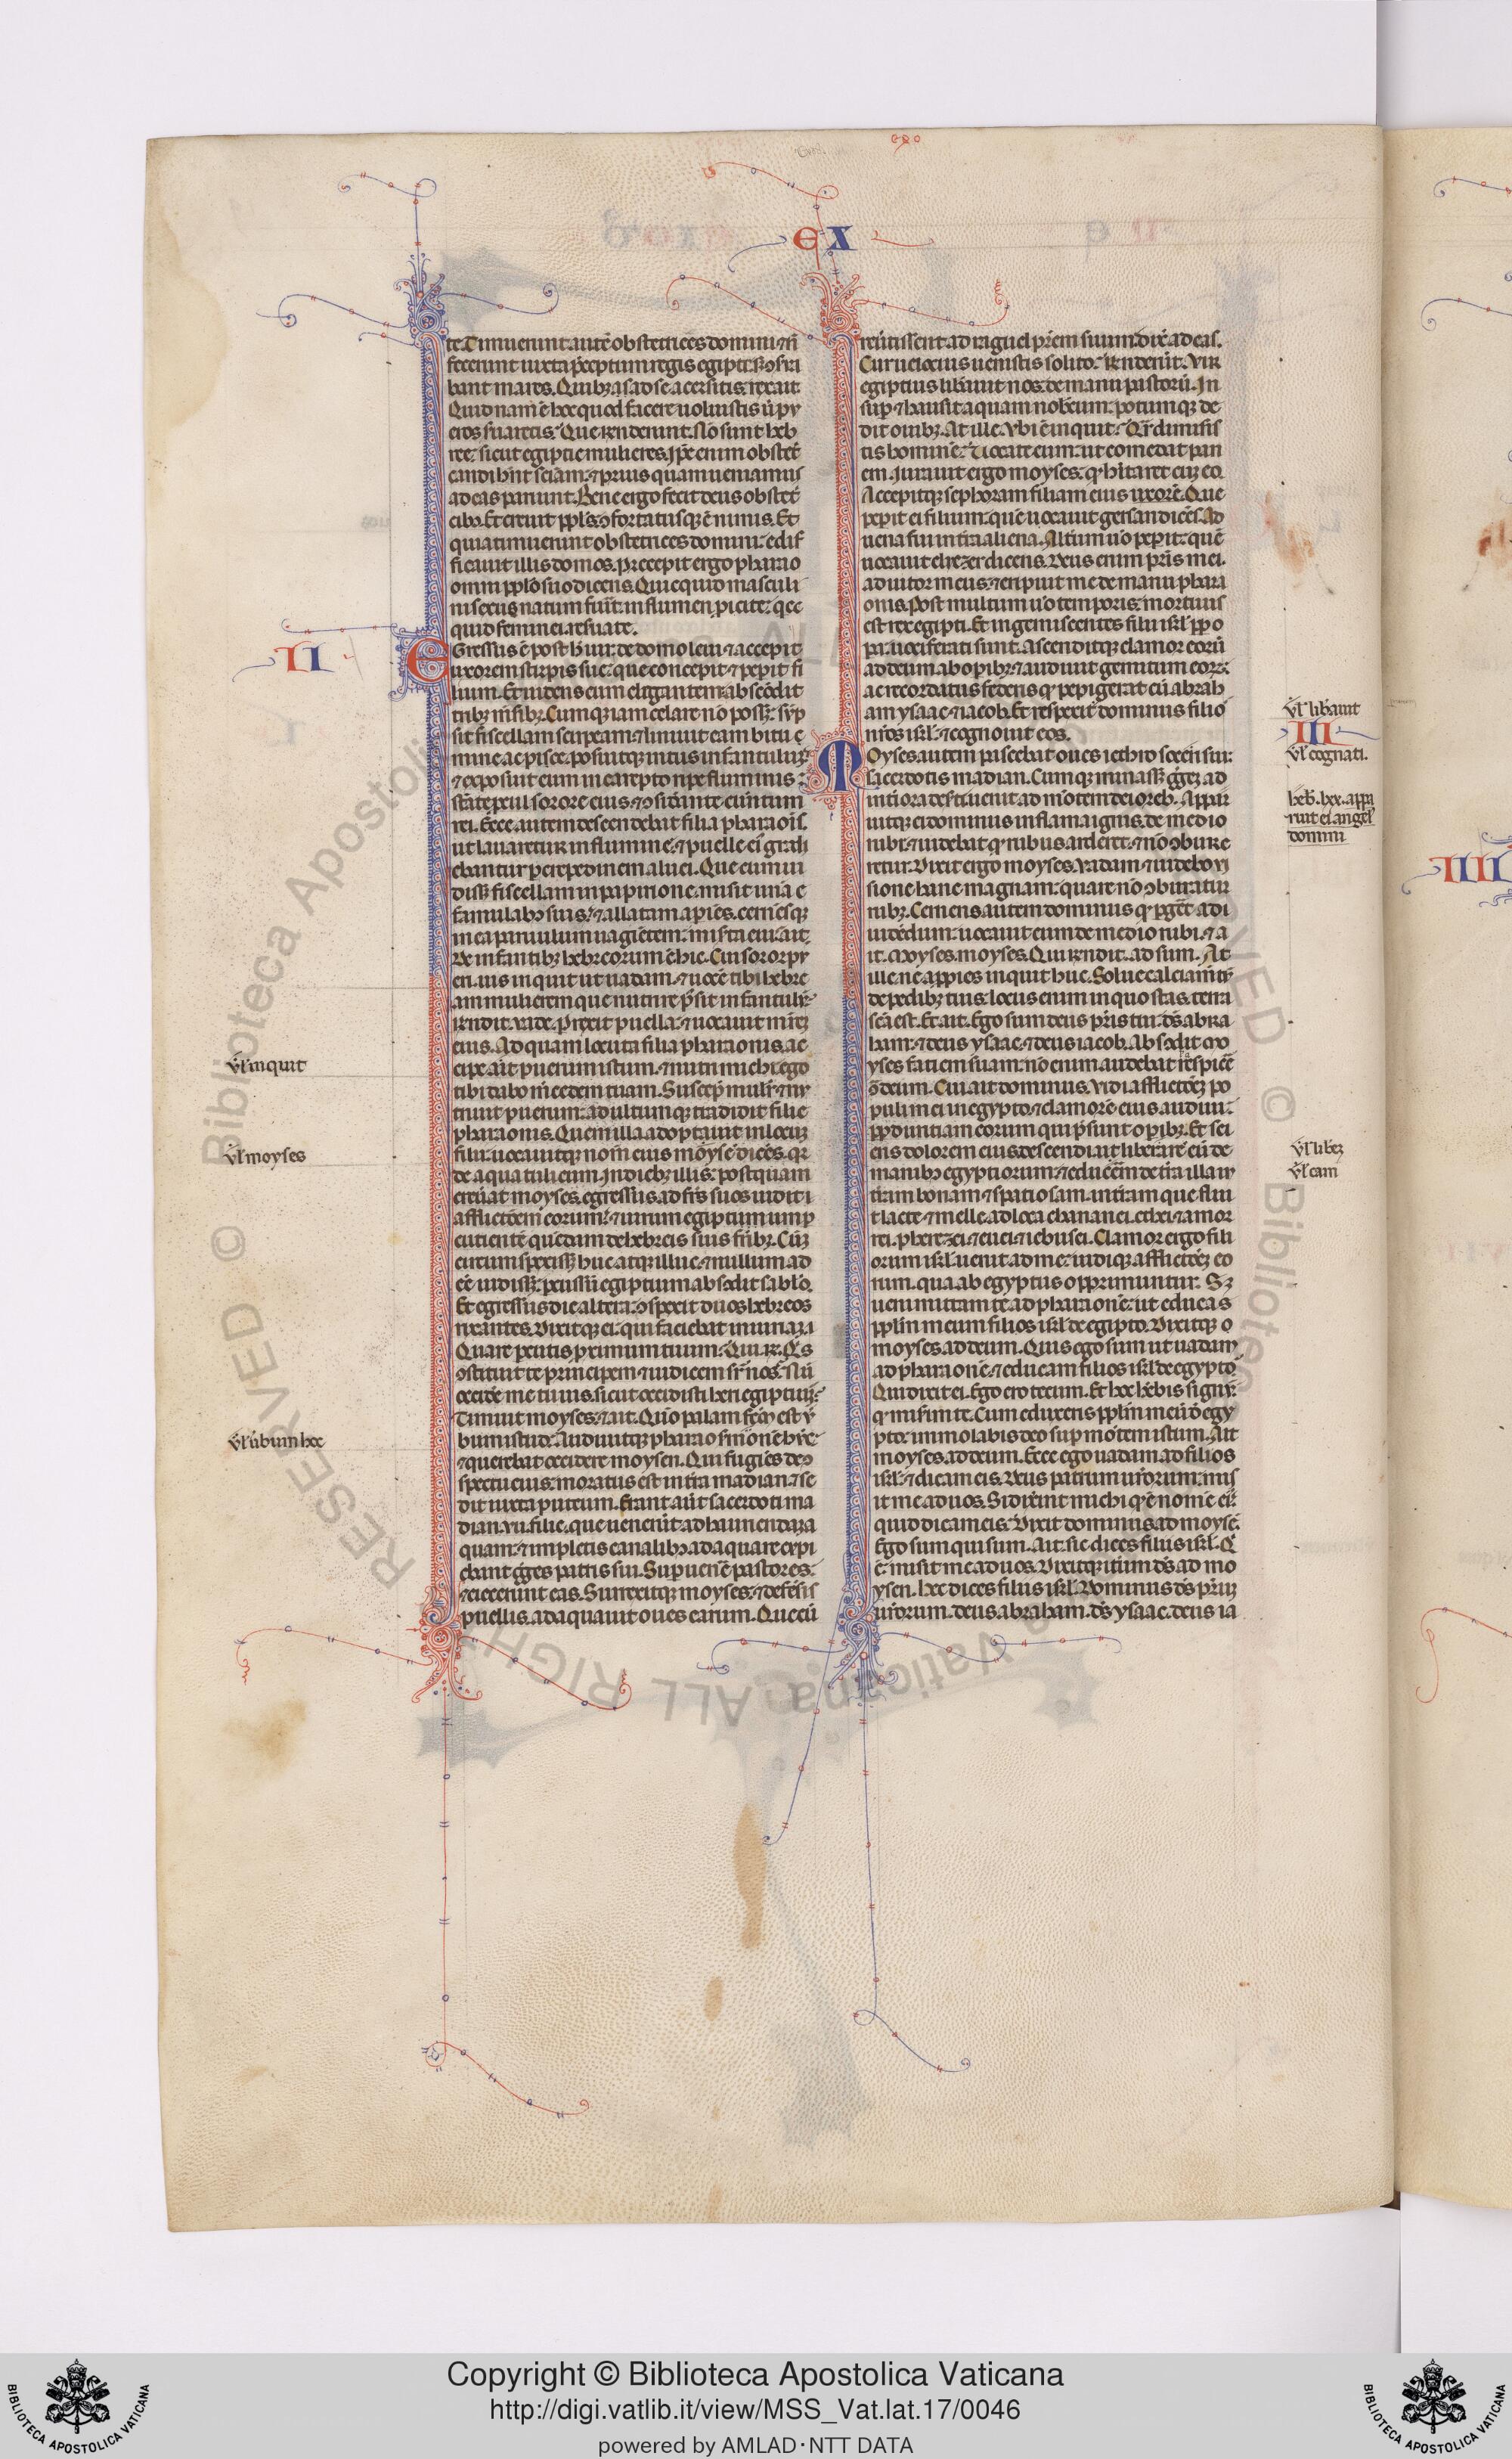 EX
te. Timuerunt autē obstetrices dominū ⁊ n̄
fecerunt iuxta p̄ceptum regis egipti. s; ɔserua
bant mares. Quibȝ ad se acersitis. rex ait.
Quid nam ē hoc quod facere uoluistis ut pu
eros suaretis. Que rn̄derunt. Nō sunt heb
ree. sicut egiptie mulieres. Ip̄e enim obstet̄
candi hn̄t sciam. ⁊ prius quam ueniamus
ad eas pariunt. Bene ergo fecit deus obstet̄
cibȝ. Et creuit ppl̄s. ɔfortatusqȝ ē nimis. Et
quia timuerunt obstetrices dominū. edif
ficauit illis domos. Precepit ergo pharao
omni pplo suo dicens. Quicquid masculi
ni sexus natum fuīt. in flumen p̄icite. qic
quid feminei. reseruate.
II
EGressus ē post h̄ uir. de domo leui ⁊ accepit
uxorem stirpis sue. que concepit ⁊ pepit fi
lium. Et uidens eum elegantem. abscōdit
tribȝ m̄sibȝ. Cumqȝ iam celare nō posset. sūp
sit fiscellam scirpeam. ⁊ liniuit eam bitu
mine ac pice. posuitqȝ intus infantulum
⁊ exposuit eum in carepto ripe fluminis.
stāte pcul sorore eius. ⁊ ɔsiderante euentum
rei. Ecce autem descendebat filia pharaōis.
ut lauaretur in flumine. ⁊ puelle ei᷒ gradi
ebantur per crepedinem aluei. Que cum ui
disset fiscellam in papirione. misit unā e
famulabȝ suis. ⁊ allatam apiēs. cernēsqȝ
in ea paruulum uagiētem. miserta ei᷒. ait.
De infantibȝ hebreorum ē hic. Cui soror pu
eri. uis inquit ut uadam. ⁊ uocē tibi hebre
am mulierem que nutrire p̄sit infantulū.
rn̄dit. uade. Prexit puella. ⁊ uocauit mr̄em
eius. Ad quam locuta filia pharaonis. ac
cipe ait puerum istum. ⁊ nutri michi. ego
tibi dabo m̄cedem tuam. Suscep̄ muli᷒. ⁊ nu
triuit puerum. adultumqȝ tradidit filie
pharaonis. Quem illa adoptauit in locum
filii. uocauitqȝ nom̄ eius moysē dicēs. qr
de aqua tuli eum. In diebȝ illis. postquam
creuat moyses. egressus ad fr̄s suos. uidit
afflictōem eorum. ⁊ uirum egiptium p
cutientē quēdam de hebreis suis frībȝ. Cūqȝ
circumspexisset huc atqȝ illuc. ⁊ nullum ad
eē uidisset. percussū egiptium abscōdit sablo.
Et egressus die altera. ɔspexit duos hebreos
rixantes. Dixitqȝ ei. qui faciebat iniuriam.
Quare percutis proximum tuum. Qui r̄. Q̄s
ɔstituit te principem ⁊ iudicem sr̄ nos. Nū
occidē me tu uis. sicut occidisti heri egiptiū.
Timuit moyses. ⁊ ait. Quō palam fcm̄ est u
bum istud. Audiuitqȝ pharao sermōnē hūc
⁊ querebat occidere moysen. Qui fugiēs de ɔ
spectu eius. moratus est in tr̄a madian. ⁊ se
dit iuxta puteum. Erant aūt sacerdoti ma
dian. vii. filie. que uenerūt ad hauriendam
quam. ⁊ impletis canalibȝ adaquare cupi
ebant ḡges patris sui. Supuenē pastores.
⁊ eiecerunt eas. Surrexitqȝ moyses. ⁊ defēsis
puellis. adaquauit oues earum. Que cū
ul᷒ inquit
ul᷒ moyses
ul᷒ ūbum hoc
reūtissent ad raguel pr̄em suum. dix̄ ad eas.
Cur uelocius uenistis solito. Rn̄derūt. Vir
egiptius libauit nos. de manu pastorū. In
sup ⁊ hausit aquam nobcum. potumqȝ de
dit ouibȝ. At ille. Vbi ē inquit. Qr̄ dimisis
tis hominē. Uocate eum. ut comedat pan
em. Iurauit ergo moyses. qꝫ hītaret cum eo.
Accepitqȝ sephoram filiam eius uxorē. Que
pepit ei filium. quē uocauit gersan dicēs. Ad
uena fui in tr̄a aliena. Altum uo pepit. quē
uocauit eliezer dicens. Deus enim pr̄is mei.
adiutor meus. ⁊ eripuit me de manu phara
onis. Post multum uo temporis. mortuus
est rex egipti. Et ingemiscentes filii isrl̄. pp̄ o
pa. uociferati sunt. Ascenditqȝ clamor eorū
ad deum. ab opibȝ. ⁊ audiuit gemitum eorȝ.
ac recordatus federis qꝫ pepigerat cū abrah
am ysaac. ⁊ iacob. Et respexit dominus filio
rios isrl̄. ⁊ cognouit eos.
ul᷒ libauit
III
ul᷒ cognati.
MOyses autem pascebat oues iethro soceri sui.
sacerdotis madian. Cumqȝ minasset ḡgeȝ ad
int̄iora deserti. uenit ad mōtem dei oreb. Appar
uitqȝ ei dominus in flama ignis. de medio
rubi. ⁊ uidebat qꝫ rubus arderet. ⁊ nō ɔbure
retur. Dixit ergo moyses. Vadam ⁊ uidebo ui
sionē hanc magnam. quare nō ɔburatur
rubȝ. Cernens autem dominus qꝫ pget ad ui
uidēdum. uocauit eum de medio rubi. ⁊ a
it. Moyses. moyses. Qui rn̄dit. ad sum. At
ille. ne appies inquit huc. Solue calciam̄tū
de pedibȝ tuis. locus enim in quo stas. terra
scā est. Et ait. Ego sum deus pr̄is tui. d̄s abra
ham. ⁊ deus ysaac. ⁊ deus iacob. Abscōdit mo
yses faciem suam. nō enim audebat respicē
ɔ̄ deum. Cui ait dominus. Vidi afflictōeȝ po
puli mei in egypto. ⁊ clamorē eius audiui.
pp̄ duritiam eorum qui p̄sunt opibȝ. Et sci
ens dolorem eius. descendi. ut liberarē eū de
manibȝ egyptiorum. ⁊ educerē de tr̄a illa in
tr̄am bonam ⁊ spatiosam. in tr̄am que flui
t lacte ⁊ melle. ad loca chananei. ethei. ⁊ amor
rei. pherezei. ⁊ euei. ⁊ iebusei. Clamor ergo fili
orum isrl̄ uenit ad me. uidiqȝ afflictōeȝ eo
rum. qua ab egyptiis opprimuntur. Sȝ
ueni mittam te. ad pharaonē. ut educas
pplm̄ meum filios isrl̄ de egipto. Dixitqȝ
moyses. ad deum. Quis ego sum ut uadam
ad pharaonē. ⁊ educam filios isrl̄ de egypto.
Qui dixit ei. Ego ero tecum. Et hoc hēbis signū.
qꝫ miserim te. Cum eduxeris pplm̄ meū d̄ egy
pto. immolabis deo sup mōtem istum. Ait
moyses. ad deum. Ecce ego uadam ad filios
isrl̄. ⁊ dicam eis. Deus patrum urorum. mis
it me ad uos. Si dixerīt michi qꝫ ē nomē ei᷒.
quid dicam eis. Dixit dominus ad moysē.
Ego sum qui sum. Ait. sic dices filiis isrl̄. Q̄
ē. misit me ad uos. Dixitqȝ itum d̄s ad mo
ysen. hec dices filiis isrl̄. Dominus d̄s pr̄um
urorum. deus abraham. d̄s ysaac. deus ia
heb᷒. hec. appa
ruit ei angel᷒
domini
ul᷒ libeȝ
ul᷒ eam
IIII
Copyright © Biblioteca Apostolica Vaticana
http://digi.vatlib.it/view/MSS_Vat.lat.17/0046
powered by AMLAD·NTT DATA
BIBLIOTECA APOSTOLICA VATICANA
BIBLIOTECA APOSTOLICA VATICANA